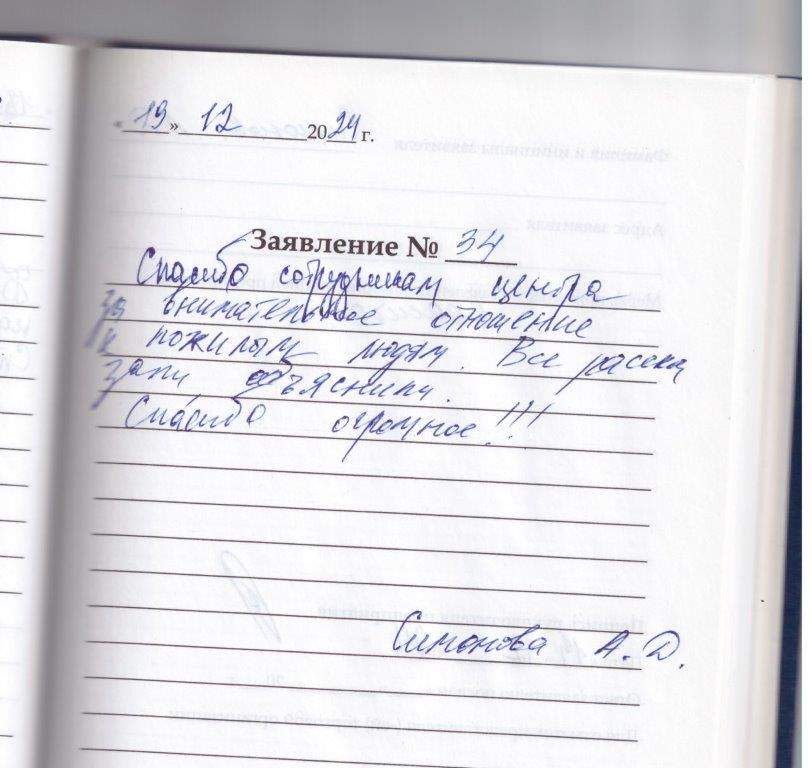 «19» 12 2024 г.
Заявление № 34
Спасибо сотрудникам центра
за внимательное отношение
к пожилым людям. Все расска
зали объяснили.
Спасибо огромное!!!
Симонова А. Д.